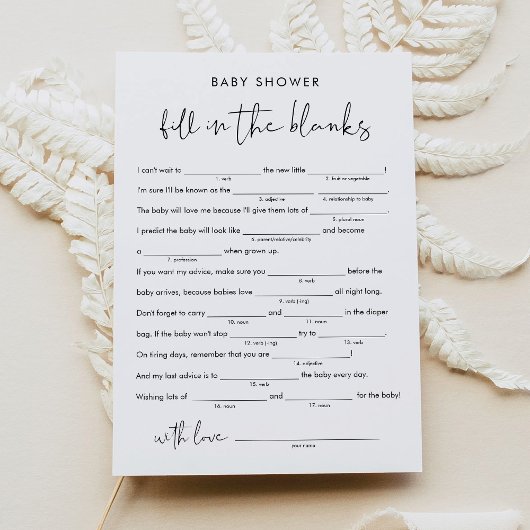 BABY SHOWER
fill in the blanks
I can't wait to ____________ the new little ____________!
1. verb 2. fruit or vegetable
I'm sure I'll be known as the ____________ ____________
3. adjective 4. relationship to baby
The baby will love me because I'll give them lots of ____________.
5. plural noun
I predict the baby will look like ____________ and become
6. parent/relative/celebrity
a ____________ when grown up.
7. profession
If you want my advice, make sure you ____________ before the
8. verb
baby arrives, because babies love ____________ all night long.
9. verb (-ing)
Don't forget to carry ____________ and ____________ in the diaper
10. noun 11. noun
bag. If the baby won't stop ____________ try to ____________.
12. verb (-ing) 13. verb
On tiring days, remember that you are ____________!
14. adjective
And my last advice is to ____________ the baby every day.
15. verb
Wishing lots of ____________ and ____________ for the baby!
16. noun 17. noun
with love ____________
your name